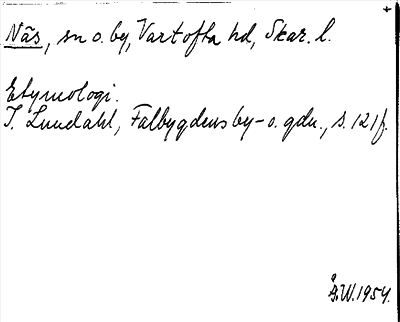 Näs, sn o. by, Vartofta hd, Skar. l.
Etymologi.
I. Lundahl, Falbygdens by- o. gdn., s. 121f.
Å.W. 1954.